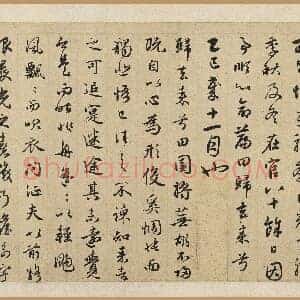 季秋及冬在官八十餘日因
事順心命篇曰歸去來兮
乙巳歲十一月也
歸去來兮田園將蕪胡不歸
既自以心為形役奚惆悵而
獨悲悟已往之不諫知來者
之可追寔迷途其未遠覺
今是而昨非舟遙〻以輕颺
風飄〻而吹衣問征夫以前路
恨晨光之熹微乃瞻衡宇